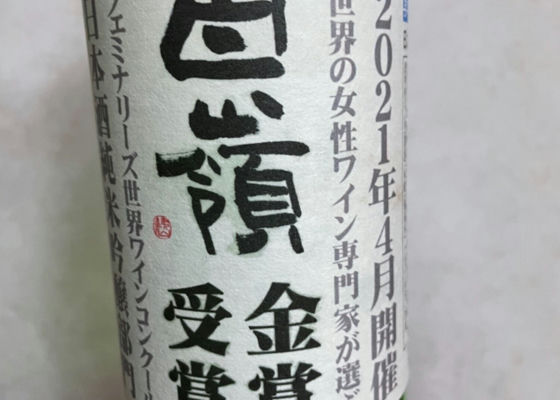 2021年4月開催
世界の女性ワイン専門家が選ぶ
嶺
金賞
受賞
フェミナリーズ世界ワインコンクール
日本酒純米吟醸部門